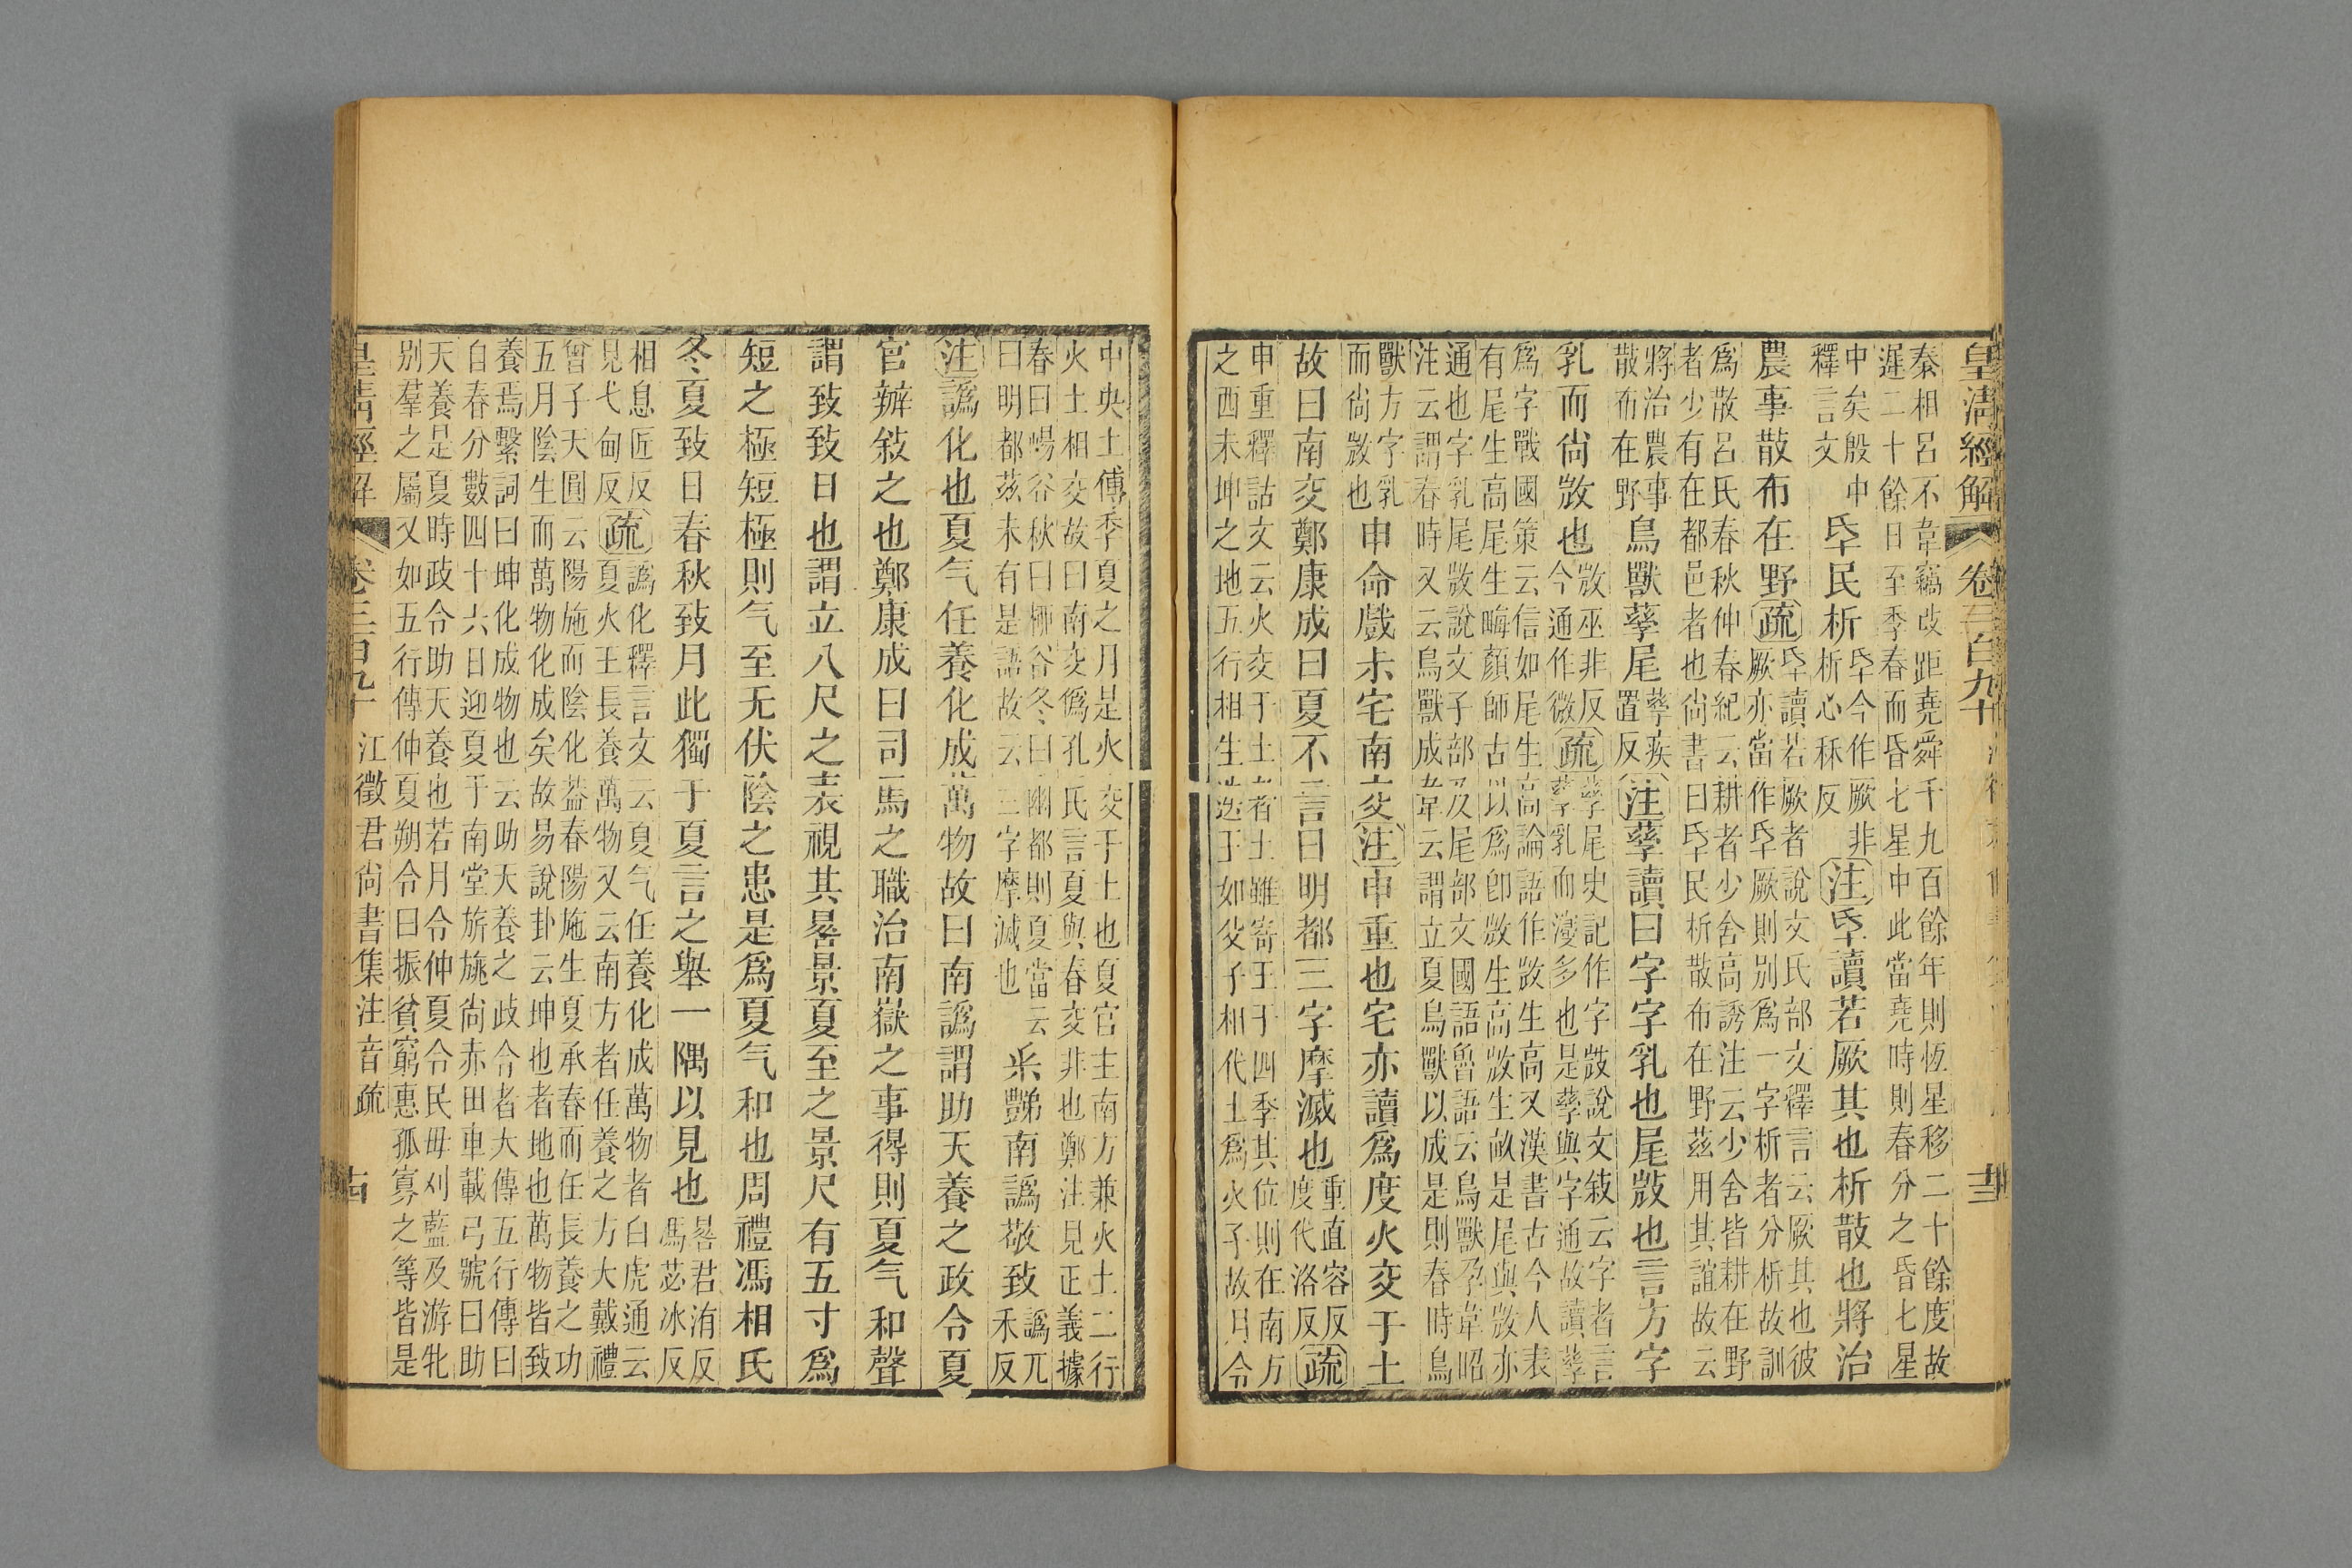 皇清經解 卷三百九十
秦相呂不韋竊改距堯舜千九百餘年則恆星移二十餘度故
遲二十餘日至季春而昏七星中此當堯時則春分之昏七星
中矣殷中
釋言文
氒民析
氒今作厥非
析心秝反
注氒讀若厥其也析散也將治
農事散布在野疏
氒讀若厥者說文氏部文釋言云厥其也彼
厥亦當作氒厥則別爲一字析者分析故訓
爲散呂氏春秋仲春紀云耕者少舍高誘注云少舍皆耕在野
者少有在都邑者也尙書曰氒民析散布在野茲用其誼故云
將治農事
散布在野
鳥獸孳尾
孳疾
置反
注孳讀曰字字乳也尾㪚也言方字
乳而尙㪚也
㪚巫非反
今通作微
疏
孳尾史記作字㪚說文敍云字者言
孳乳而漫多也是孳與字通故讀孳
爲字戰國策云信如尾生高論語作㪚生高又漢書古今人表
有尾生高尾生晦顏師古以爲卽㪚生高㪚生畝是尾與㪚亦
通也字乳尾㪚說文子部及尾部文國語魯語云鳥獸孕韋昭
注云謂春時又云鳥獸成韋云謂立夏鳥獸以成是則春時鳥
獸方字乳
而尙㪚也
申命戲尗宅南交注申重也宅亦讀爲度火交于土
故曰南交鄭康成曰夏不言曰明都三字摩滅也
重直容反
度代洛反
疏
申重釋詁文云火交于土者土雖寄王于四季其位則在南方
之西未坤之地五行相生迭于如父子相代土爲火子故月令
中央土傅季夏之月是火交于土也夏官主南方兼火土二行
火土相交故曰南交僞孔氏言夏與春交非也鄭注見正義據
春曰暘谷秋曰桺谷冬曰幽都則夏當云
曰明都茲未有是語故云三字摩滅也
釆豑南譌敬致
譌兀
禾反
注譌化也夏气任養化成萬物故曰南譌謂助天養之政令夏
官辦敍之也鄭康成曰司馬之職治南嶽之事得則夏气和聲
謂致致日也謂立八尺之表視其晷景夏至之景尺有五寸爲
短之極短極則气至无伏陰之患是爲夏气和也周禮馮相氏
冬夏致日春秋致月此獨于夏言之舉一隅以見也
晷君洧反
馮苾冰反
相息匠反
見弋甸反
疏
譌化釋言文云夏气任養化成萬物者白虎通云
夏火王長養萬物又云南方者任養之方大戴禮
曾子天圓云陽施而陰化葢春陽施生夏承春而任長養之功
五月陰生而萬物化成矣故易說卦云坤也者地也萬物皆致
養焉繫詞曰坤化成物也云助天養之政令者大傳五行傳曰
自春分數四十六日迎夏于南堂旂旐尙赤田車載弓號曰助
天養是夏時政令助天養也若月令仲夏令民毋刈藍及游牝
別羣之屬又如五行傳仲夏朔令曰振貧窮惠孤寡之等皆是
皇清經解 卷三百九十 江徵君尙書集注音疏 古